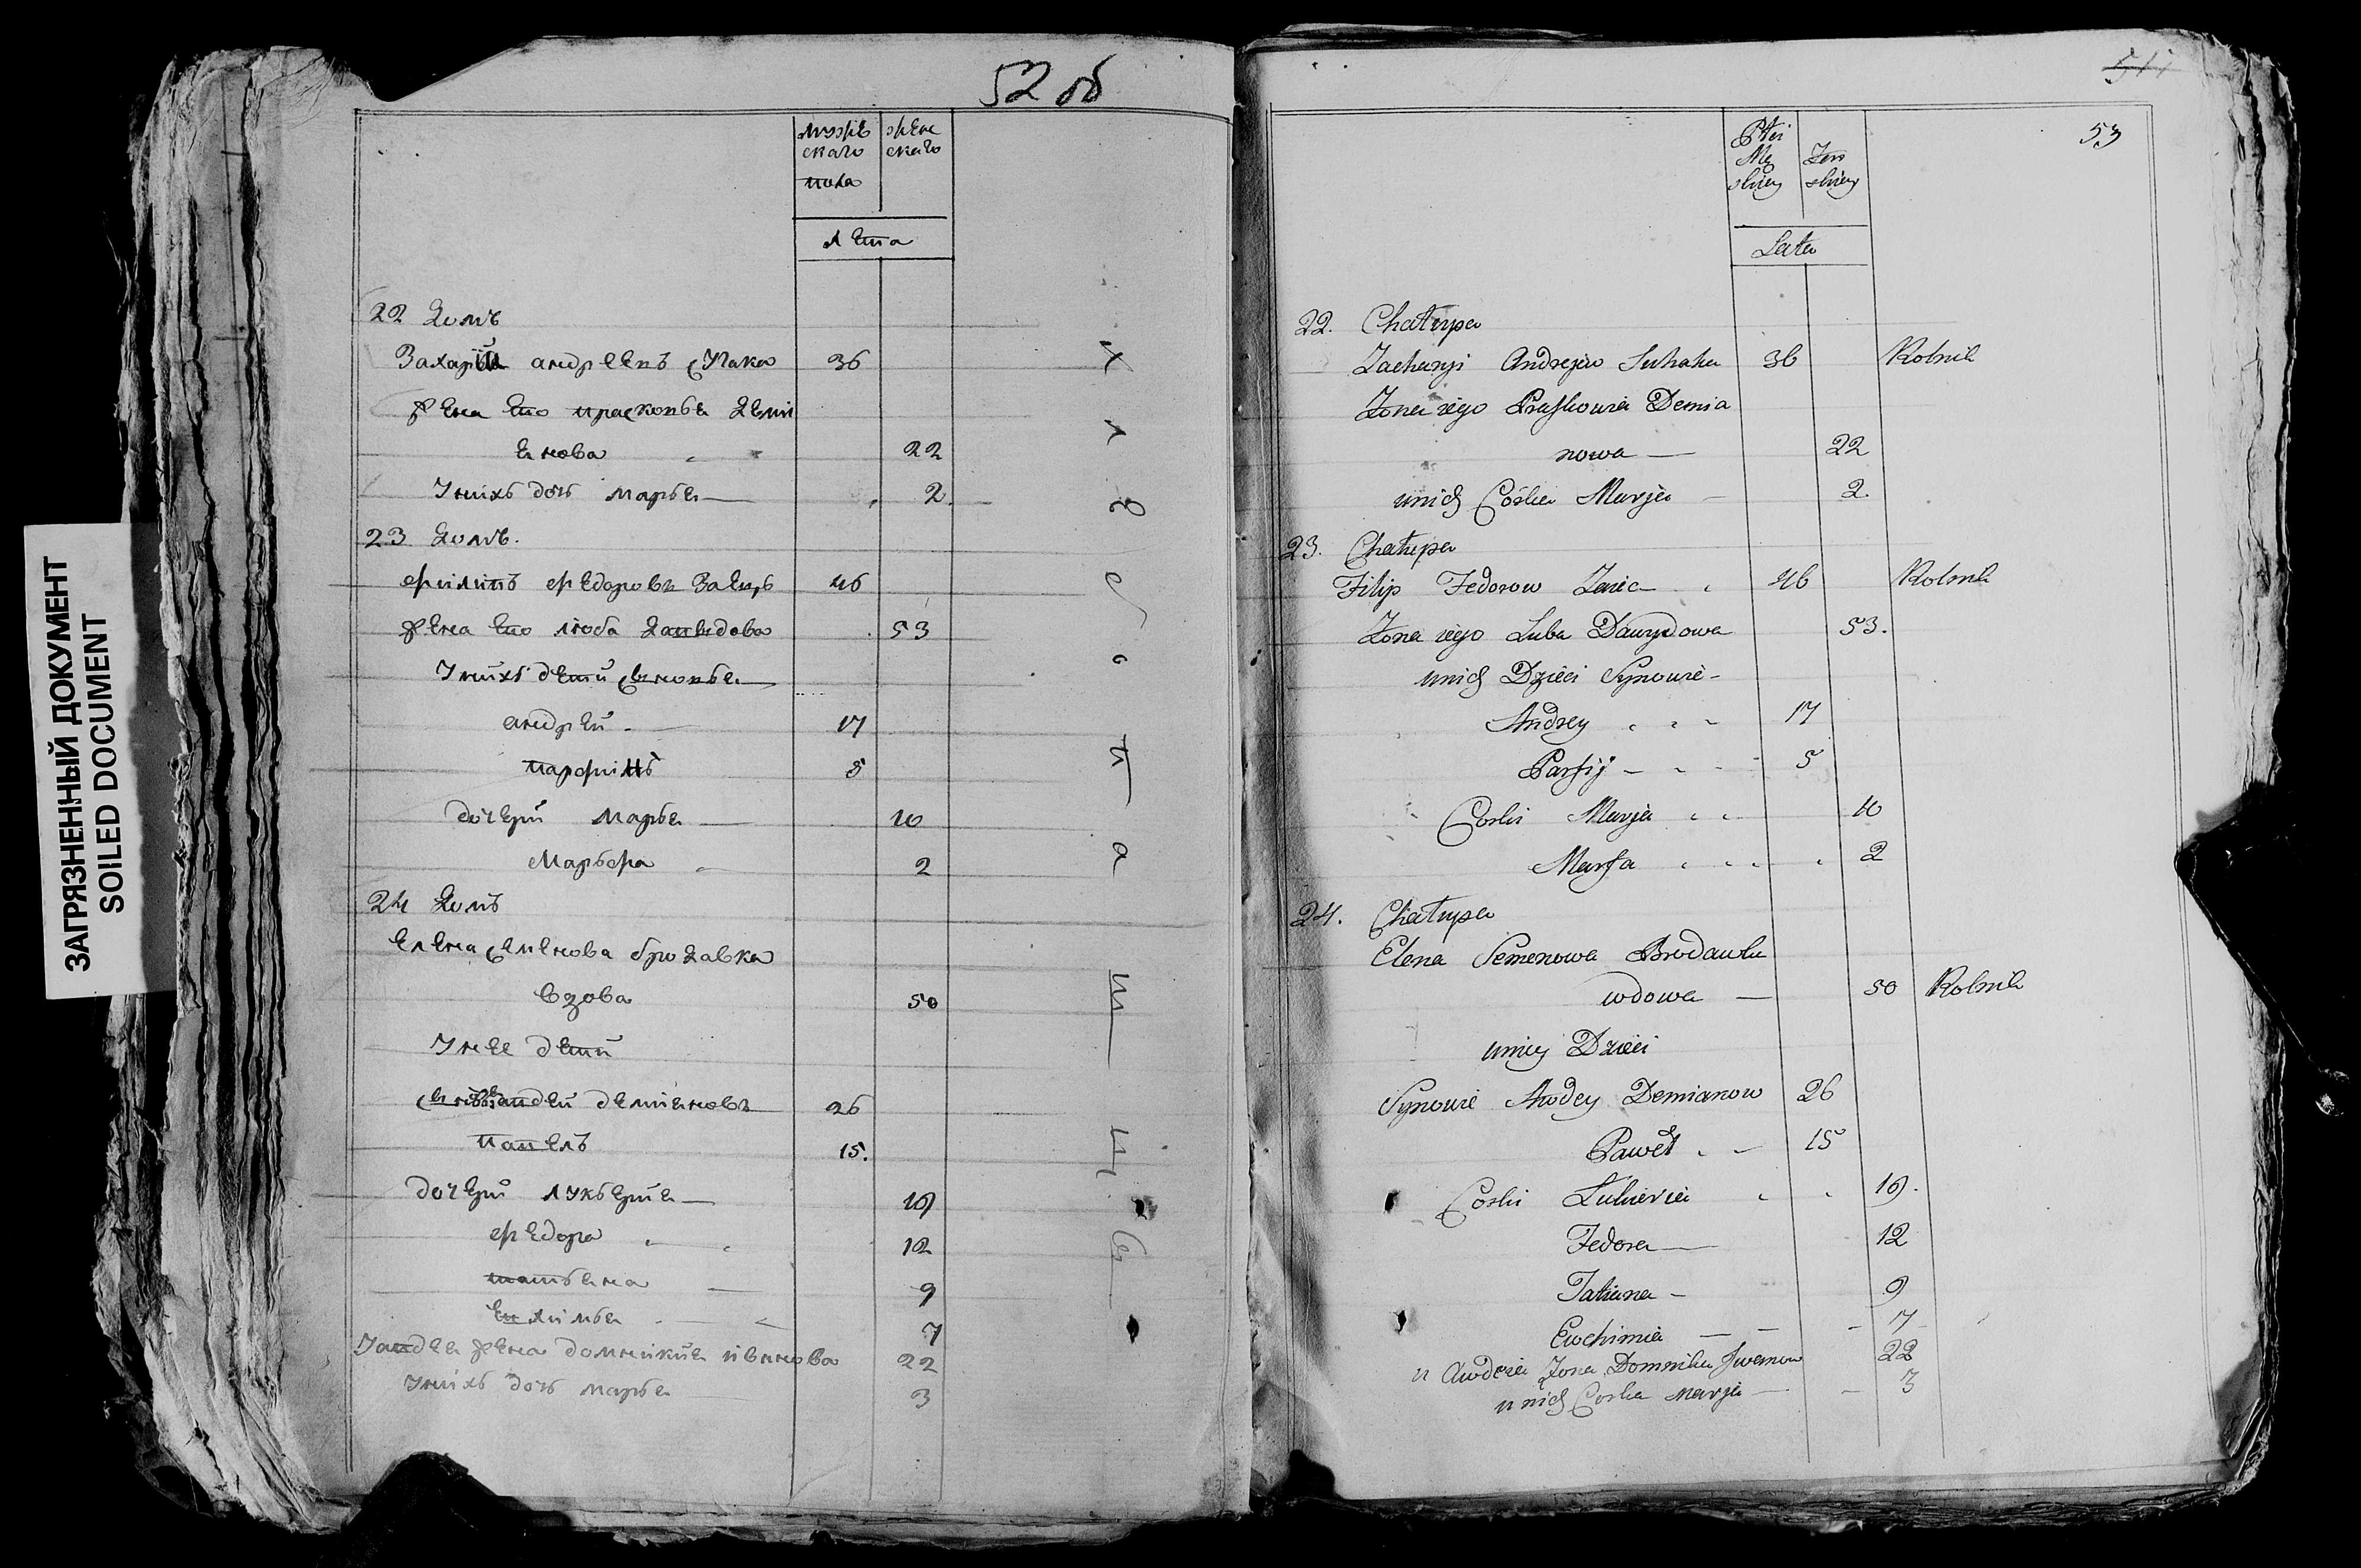 ЗАГРЯЗНЕННЫЙ ДОКУМЕНТ
SOILED DOCUMENT
52 об
муже женс
скаго скаго
пола
лета
22 Домъ
Захарій андреевъ Супака 36
жена Его прасковья Деми
янова 22
У нихъ дочь марья 2
23 Домъ.
филипъ федоровъ Заецъ 46
жена Его люба Давидова 53
У нихъ дети сыновья
андрей 17
парфий 5
дочери марья 10
Марьфа 2
24 Домъ
Елена Семенова бродавка
вдова 50
У нее дети
авдей демияновъ 26
павелъ 15.
дочери лукерия 19
федора 12
татьяна 9
Евхимья 7
У авдея жена домникия иванова 22
У нихъ дочь марья 3
хлебопашцы
53
Płci
Mę Żeń
skiey skiey
Lata
22. Chałupa
Zacharyi Andrejew Suhaka 36 Rolnik
Żona iego Praskowia Demia
nowa 22
unich Córka Marja 2.
23. Chałupa
Filip Fedorow Zaiec 46 Rolnik
Żona iego Luba Dawydowa 53.
unich Dzieci Synowie
Andrey 17
Parfij 5
Corki Marja 10
Marfa 2
24. Chałupa
Elena Semenowa Brodawka
wdowa 50 Rolnik
uniey Dzieci
Synowie Awdey Demianow 26
Paweł 15
Corki Lukieria 19.
Fedora 12
Tatiana 9
Ewchimia 7
u Awdeia Żona Domnika Iwanow 22
u nich Corka Marja 3